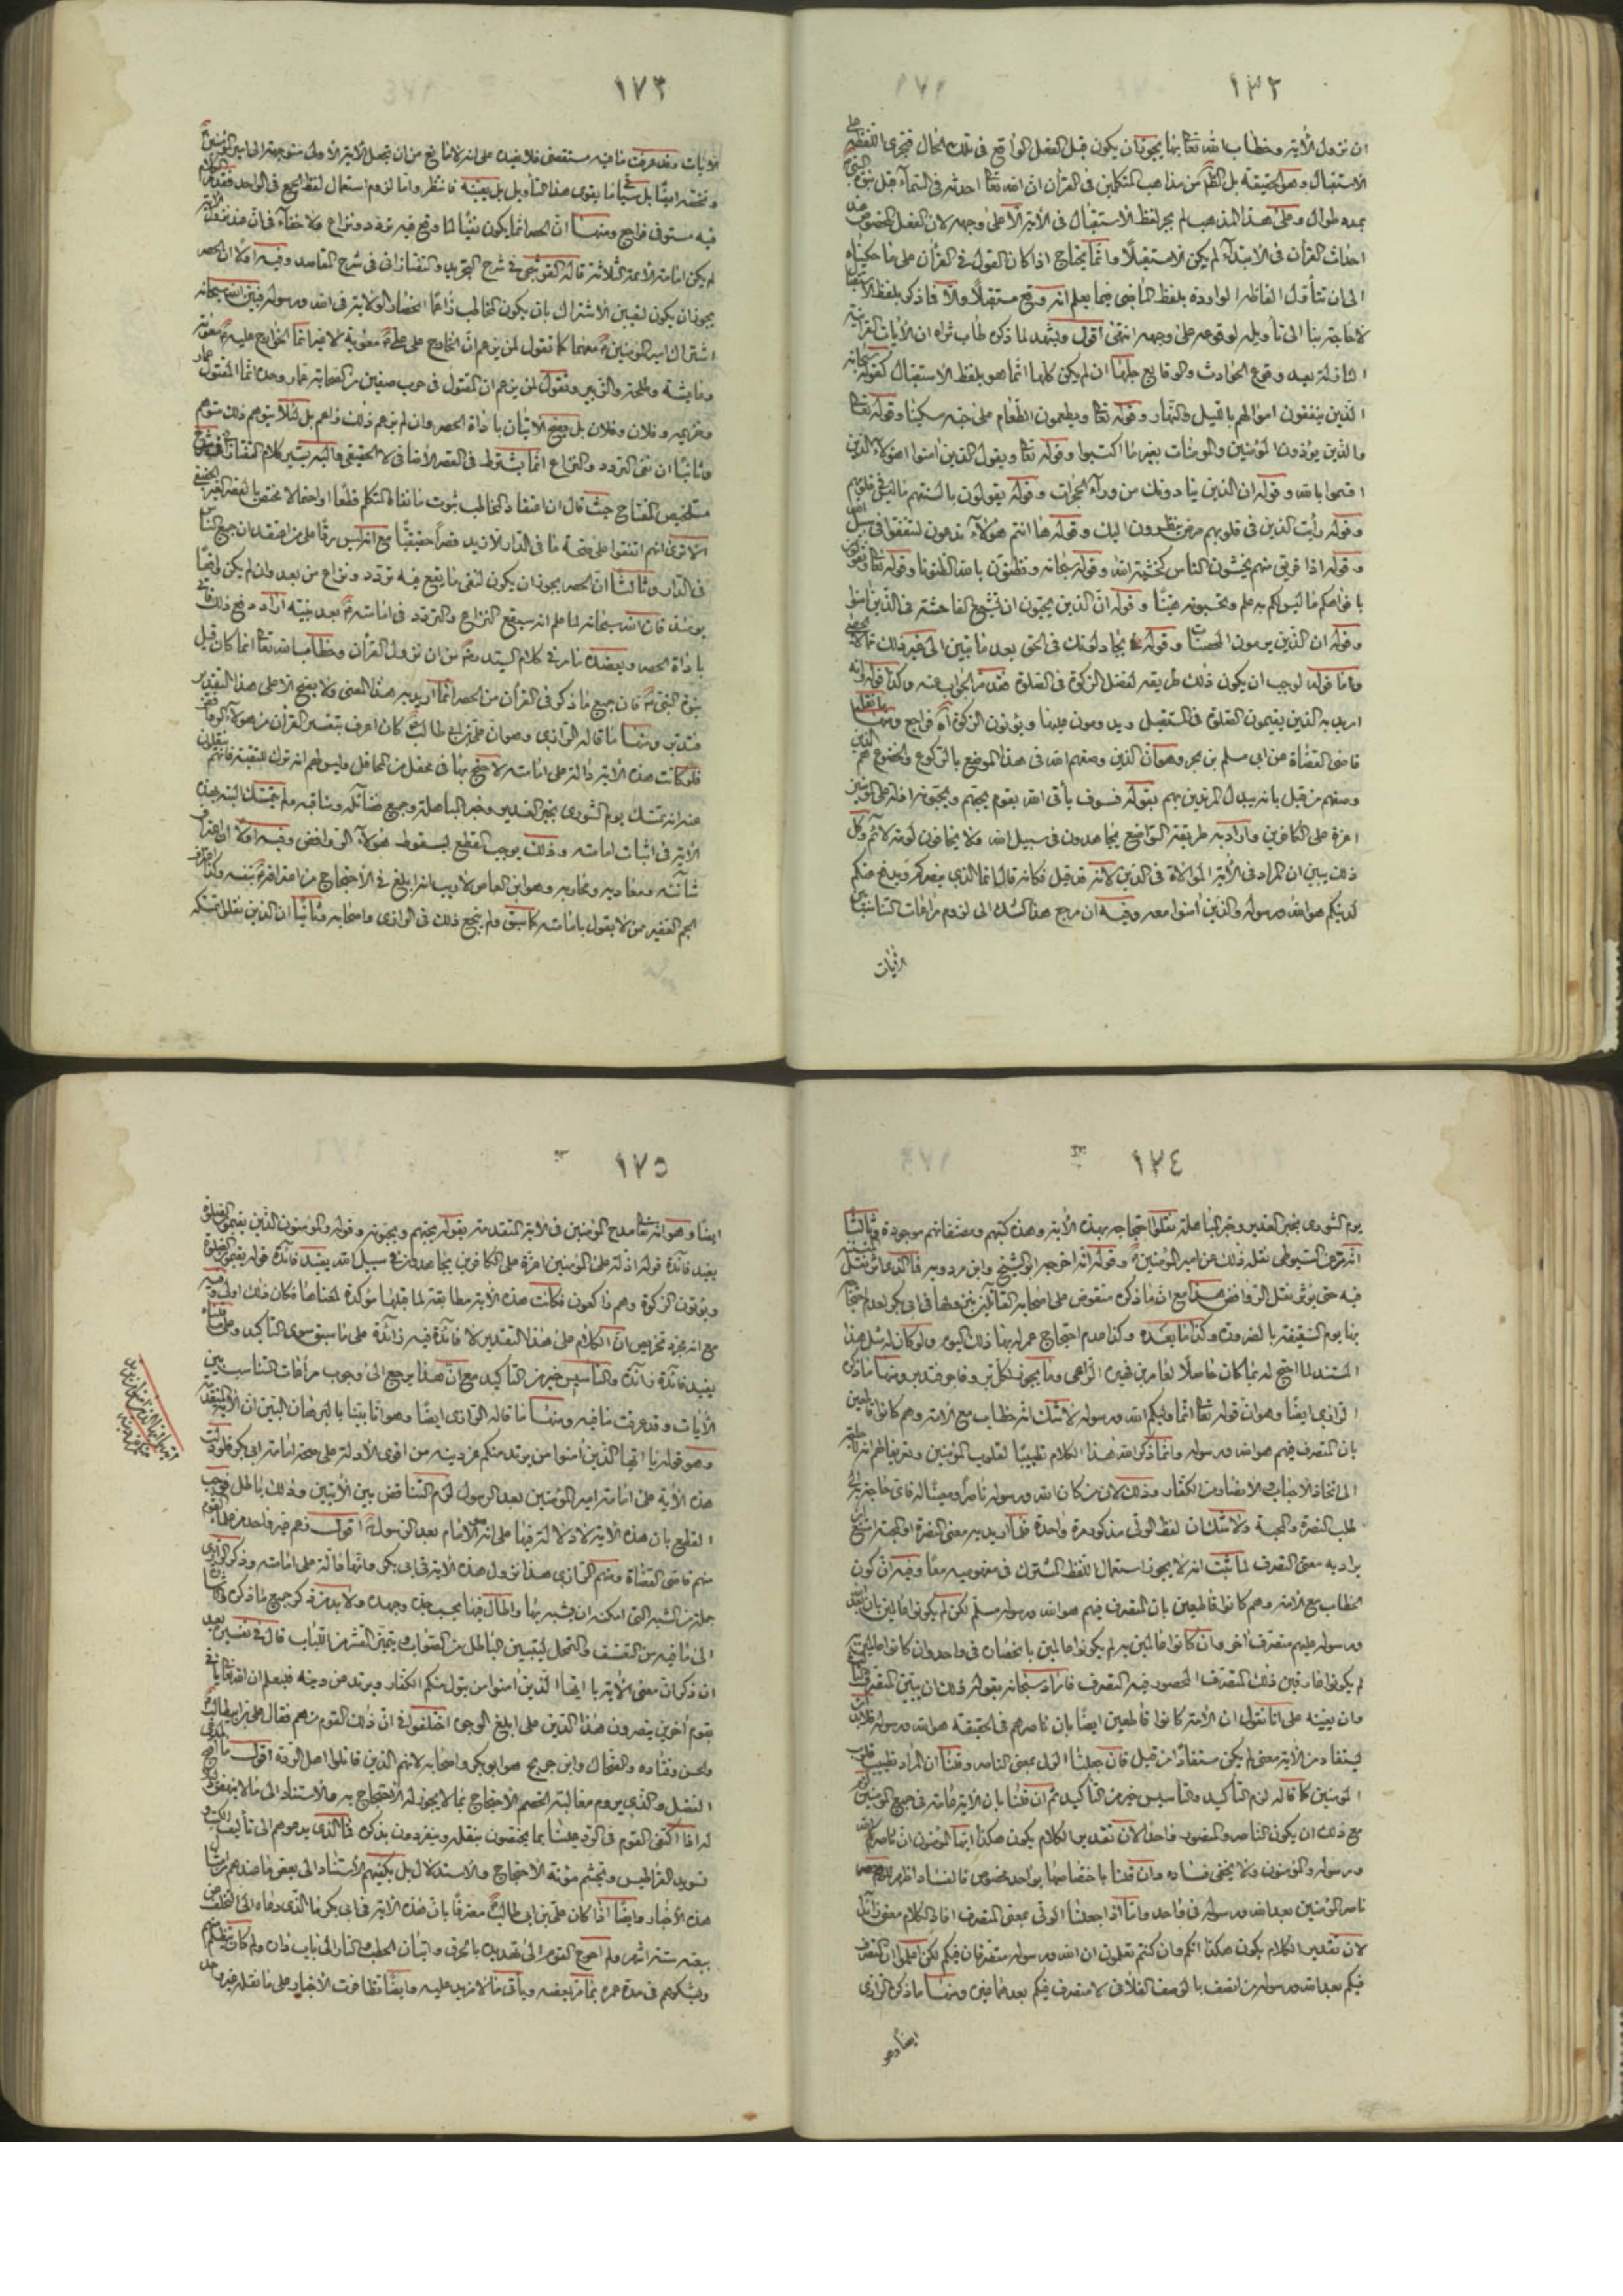 ١٧٢
ان نزول الآية وخطاب الله تعالى بها يجوز ان يكون قبل الفعل الواقع في تلك الحال فتجرى اللفظ على
الاستقبال وهو الحقيقة بل الظ من مذاهب المتكلمين في القرآن ان الله تعالى احدثه في السماء قبل نبوة النبي
بمدة طوال وعلى هذا المذهب لم يجر لفظ الاستقبال في الآية الا على وجهه لان الفعل المخصوص عند
احداث القرآن في الابتداء لم يكن الا مستقبلا وانما يحتاج اذا كان القول في القرآن على ما حكيناه
الى ان نتأول الفاظه الواردة بلفظ الماضى فيما يعلم انه وقع مستقبلا والا فما ذكر بلفظ الاستقبال
لا حاجة بنا الى تأويله لوقوعه على وجهه انتهى اقول ويشهد لما ذكره طاب ثراه ان الآيات القرآنية
النازلة بعد وقوع الحوادث والوقايع جلها ان لم يكن كلها انما هو بلفظ الاستقبال كقوله سبحانه
الذين ينفقون اموالهم بالليل والنهار وقوله تعالى ويطعمون الطعام على حبه مسكينا وقوله تعالى
والذين يؤذون المؤمنين والمومنات بغير ما اكتسبوا وقوله تعالى ويقول الذين امنوا اهؤلاء الذين
اقسموا بالله وقوله ان الذين ينادونك من وراء الحجرات وقوله يقولون بالسنتهم ما ليس في قلوبهم
وقوله رأيت الذين في قلوبهم مرض ينظرون اليك وقوله ها انتم هؤلاء تدعون لتنفقوا في سبيل الله
وقوله اذا فريق منهم يخشون الناس كخشية الله وقوله سبحانه وتظنون بالله الظنونا وقوله تعالى وتقولون
بافواهكم ما ليس لكم به علم وتحسبونه هينا وقوله ان الذين يحبون ان تشيع الفاحشة في الذين امنوا
وقوله ان الذين يرمون المحصنات وقوله يجادلونك في الحق بعد ما تبين الى غير ذلك مما لا يحصى
واما قوله لوجب ان يكون ذلك طريقه لفضل الزكوة في الصلوة فقد مر الجواب عنه وكذا قوله انه
اريد به الذين يقيمون الصلوة في المستقبل ويدومون عليها ويؤتون الزكوة اه فراجع ومنها ما نقله
قاضى القضاة عن ابى مسلم بن بحر وهو ان الذين وصفهم الله في هذا الموضع بالركوع والخضوع هم الذين
وصفهم من قبل بانه يبدل المرتدين بهم بقوله فسوف يأتى الله بقوم يحبهم ويحبونه اذلة على المؤمنين
اعزة على الكافرين واراد به طريقة التواضع يجاهدون في سبيل الله ولا يخافون لومة لائم وكل
ذلك يبين ان المراد في الآية الموالاة في الدين لانه قد قيل فكانه قال انما الذى ينصركم ويدفع عنكم
لدينكم هو الله ورسوله والذين امنوا معه وفيه ان مرجع هذا الشك الى لزوم مراعات التناسب بين
الايات
١٧٣
الآيات وقد عرفت ما فيه مستقصى فلا نعيده على انه لا مانع من ان نجعل الآية الاولى متوجهة الى امير المؤمنين
ونخصه ايضا بل سيأتى ما يقوى هذا التأويل بل يعينه فانتظر واما لزوم استعمال لفظ الجمع في الواحد فقد مر الكلام
فيه مستوفى فراجع ومنها ان الحصر انما يكون نفيا لما وقع فيه تردد ونزاع ولا خفاء في ان عند نزول الآية
لم يكن امامة الائمة الثلاثة قاله القوشجى في شرح التجريد والتفتازانى في شرح المقاصد وفيه اولا ان الحصر
يجوز ان يكون لتعيين الاشتراك بان يكون المخاطب زاعما انحصار الولاية في الله ورسوله فبين الله سبحانه
اشتراك امير المؤمنين معهما كما تقول لمن يزعم ان الخارج على علىّ معوية لا غير انما الخوارج عليه معوية
وعايشة وطلحة والزبير وتقول لمن يزعم ان المقتول في حرب صفين من الصحابة عمار وحده انما المقتول عمار
وخزيمه وفلان وفلان بل يصح الاتيان باداة الحصر وان لم يزعم ذلك زاعم بل لئلا يتوهم ذلك متوهم
وثانيا ان نفى التردد والنزاع انما يشترط في القصر الاضافى لا الحقيقى واليه يشير كلام التفتازانى في شرح
تلخيص المفتاح حيث قال ان اعتقاد المخاطب ثبوت ما نفاه المتكلم قطعا او احتمالا مختص بالقصر الغير الحقيقى
الا ترى انهم اتفقوا على صحة ما في الدار الا زيد قصرا حقيقيا مع انه ليس ردا على من اعتقد ان جميع الناس
في الدار وثالثا ان الحصر يجوز ان يكون لنفى ما يقع فيه تردد ونزاع من بعد وان لم يكن واقعا
يومئذ فان الله سبحانه لما علم انه سيقع النزاع والتردد في امامته بعد نبيه اراد دفع ذلك فاتى
باداة الحصر ويعضده ما مر في كلام السيد رضه من ان نزول القرآن وخطاب الله تعالى انما كان قبل
نبوة النبى فان جميع ما ذكر في القرآن من الحصر انما اريد به هذا المعنى ولا يصح الا على هذا التقدير
فتدبر ومنها ما قاله الرازى وهو ان على بن ابى طالب كان اعرف بتفسير القرآن من هؤلاء الروافض
فلو كانت هذه الآية دالة على امامته لاحتج بها في محفل من المحافل وليس لهم انه تركه للتقية فانهم ينقلون
عنه انه تمسك يوم الشورى بخبر الغدير وخبر المباهلة وجميع فضائله ومناقبه ولم يتمسك البته بهذه
الآية في اثبات امامته وذلك يوجب القطع بسقوط هؤلاء الروافض وفيه اولا ان اعتراف
شانئه ومعاديه ومحاربه وهو ابن العاص لا ريب انه ابلغ في الاحتجاج من اعترافه بنفسه وكذا اعتراف
الجم الغفير ممن لا يقول بامامته كما سبق ولم ينجع ذلك في الرازى واصحابه وثانيا ان الذين نقلوا تمسكه
١٧٤
يوم الشورى بخبر الغدير وخبر المباهلة نقلوا احتجاجه بهذه الآية وهذه كتبهم ومصنفاتهم موجودة وثالثا
انه قد مر عن السيوطى نقله ذلك عن امير المؤمنين وقوله انه اخرجه ابو الشيخ وابن مردويه فما الذى
فيه حتى يؤثر نقل الروافض هذا مع ان ما ذكره منقوض على اصحابه القائلين بنزولها في ابى بكر لعدم احتجاجه
بها يوم السقيفة بالضرورة وكذا ما بعده وكذا عدم احتجاج عمر له بها ذلك اليوم ولو كان له مثل هذا
المستند لما احتج له بما كان حاصلا لعامر بن فهيرة الراعى وما يجوز لكل بر وفاجر فتدبر ومنها ما ذكره
الرازى ايضا وهو ان قوله تعالى انما وليكم الله ورسوله لا شك انه خطاب مع الامة وهم كانوا قاطعين
بان المتصرف فيهم هو الله ورسوله وانما ذكر الله هذا الكلام تطييبا لقلوب المؤمنين وتعريفا لهم انه لا حاجة
الى اتخاذ الاحباب والانصار من الكفار وذلك لان من كان الله ورسوله ناصرا ومعينا له فاى حاجة به الى
طلب النصرة والمحبة ولا شك ان لفظ الولى مذكور مرة واحدة فلما اريد به معنى النصرة او المحبة امتنع ان
يراد به معنى التصرف لما ثبت انه لا يجوز استعمال اللفظ المشترك في مفهوميه معا وفيه ان كون
الخطاب مع الامة وهم كانوا قاطعين بان المتصرف فيهم هو الله ورسوله مسلم لكن لم يكونوا عالمين بان بعد الله
ورسوله عليهم متصرف اخر وان كانوا عالمين به لم يكونوا عالمين بانحصاره في واحد وان كانوا عالمين به
لم يكونوا عارفين ذلك المتصرف المحصور فيه التصرف فاراد سبحانه بقوله ذلك ان يبين المتصرف
وان يعينه على انا نقول ان الامة كانوا قاطعين ايضا بان ناصرهم في الحقيقة هو الله ورسوله
يستفاد من الآية معنى لم يكن مستفادا من قبل فان جعلنا الولى بمعنى الناصر وقلنا ان المراد تطييب قلوب
المؤمنين كما قاله لزم التأكيد والتأسيس خير من التأكيد ثم ان قلنا بان الآية عامة في جميع المؤمنين لزم
مع ذلك ان يكون الناصر والمنصور واحدا لان تقدير الكلام يكون هكذا ايها المؤمنون ان ناصركم الله
ورسوله والمؤمنون ولا يخفى فساده وان قلنا باختصاصها بواحد مخصوص فالفساد اظهر
ناصر المؤمنين بعد الله ورسوله في واحد واما اذا جعلنا الولى بمعنى المتصرف افاد الكلام معنى زائدا
لان تقدير الكلام يكون هكذا انكم وان كنتم تعلمون ان الله ورسوله متصرفان فيكم لكن اعلموا ان المتصرف
فيكم بعد الله ورسوله من اتصف بالوصف الفلانى لا متصرف فيكم بعدهما غيره ومنها ما ذكره الرازى
ايضا وهو
١٧٥
ايضا وهو انه تعالى مدح المؤمنين في الآية المتقدمة بقوله يحبهم ويحبونه وقوله والمؤمنون الذين يقيمون الصلوة
يفيد فائدة قوله اذلة على المؤمنين اعزة على الكافرين يجاهدون في سبيل الله يفيد فائدة قوله يقيمون الصلوة
ويؤتون الزكوة وهم راكعون فكانت هذه الآية مطابقة لما قبلها مؤكدة لمعناها فكان ذلك اولى وفيه
مع انه مجرد تخريص ان الكلام على هذا التقدير لا فائدة فيه زائدة على ما سبق سوى التأكيد وعلى ما قلناه
يفيد فائدة زائدة والتأسيس خير من التأكيد مع ان هذا يرجع الى وجوب مراعات التناسب بين
الآيات وقد عرفت ما فيه ومنها ما قاله الرازى ايضا وهو انا بينا بالبرهان البين ان الآية المتقدمة
وهو قوله يا ايها الذين امنوا من يرتد منكم عن دينه من اقوى الادلة على صحة امامة ابى بكر فلو دلت
هذه الآية على امامة امير المؤمنين بعد الرسول لزم التناقض بين الآيتين وذلك باطل فوجب
القطع بان هذه الآية لا دلالة فيها على انه الامام بعد الرسول اقول زعم غير واحد من علماء القوم
منهم قاضى القضاة ومنهم الرازى هذا نزول هذه الآية في ابى بكر وانها دالة على امامته وذكر الرازى
جملة من الشبه التى امكنه ان يشبه بها واطال فيها بحسب جهده ولا بد من ذكر جميع ما ذكره والاشارة
الى ما فيه من التعسف والتمحل ليتبين الباطل من الصواب ويتميز القشر من اللباب قال في تفسيره بعد
ان ذكر ان معنى الآية يا ايها الذين امنوا من يتول منكم الكفار ويرتد عن دينه فليعلم ان الله تعالى يأتى
بقوم آخرين ينصرون هذا الدين على ابلغ الوجوه اختلفوا في ان ذلك القوم من هم فقال على بن ابى طالب
والحسن وقتاده والضحاك وابن جريج هو ابو بكر واصحابه لانهم الذين قاتلوا اهل الردة اقول
الفضل والذى يروم مغالبة الخصم الاحتجاج بما لا يجوز له الاحتجاج به والاستناد الى ما لا
له اذا اكتفى القوم في الرد علينا بما يختصون بنقله وينفردون بذكره فما الذى يدعوهم الى تأليف الكتب و
تسويد القراطيس وتجشم مؤنة الاحتجاج والاستدلال بل يكفيهم الاستناد الى بعض ما عندهم من امثال
هذه الاخبار وايضا اذا كان على بن ابى طالب معترفا بان هذه الآية في ابى بكر فما الذى دعاه الى التخلف عن
بيعته ستة اشهر ولم احوج القوم الى تهديده بالحرق واتيان الحطب والنار الى باب داره ولم كان يتظلم منهم
ويشكوهم في مدة عمره بما مر بعضه ويأتى ما لا مزيد عليه وايضا تظافرت الاخبار على ما نقله غير واحد